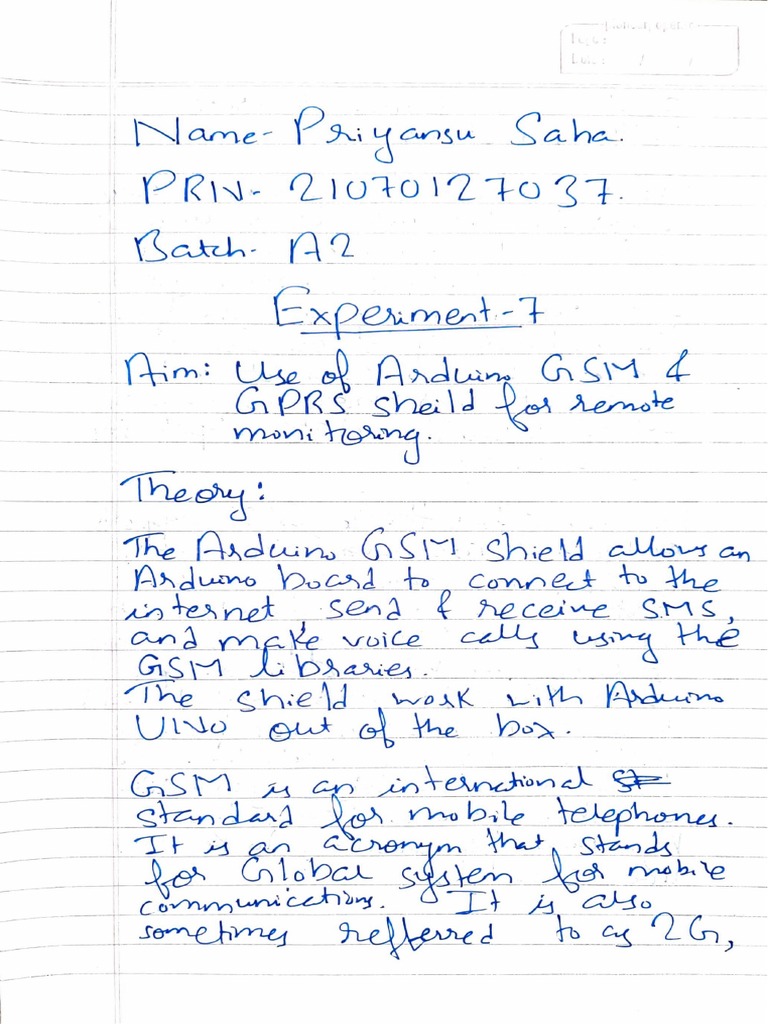 Name- Priyansu Saha.
PRN- 21070127037.
Batch- A2
Experiment-7
Aim: Use of Arduino GSM &
GPRS sheild for remote
monitoring.
Theory:
The Arduino GSM shield allows an
Arduino board to connect to the
internet, send & receive SMS,
and make voice calls using the
GSM libraries.
The shield work with Arduino
UNO out of the box.
GSM is an international
standard for mobile telephones.
It is an acronym that stands
for Global system for mobile
communications. It is also
sometimes refferred to as 2G,